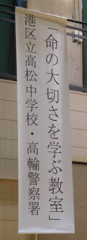 「命の大切さを学ぶ教室」
港区立高松中学校・高輪警察署